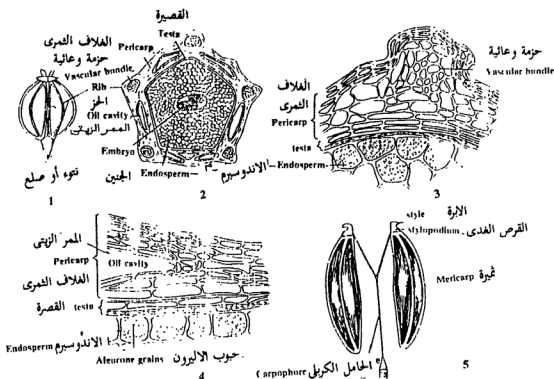 القصيرة
Testa
الغلاف الثمرى
Pericarp
حزمة وعائية
Vascular bundle
Rib
الحز
Oil cavity
الممر الزيتى
Embryo
الجنين
Endosperm
الاندوسبرم
نتوء أو ضلع
1
2
حزمة وعائية
Vascular bundle
الغلاف
الثمرى
Pericarp
testa
Endosperm
3
الممر الزيتى
Pericarp
Oil cavity
الغلاف الثمرى
القصرة
testa
Endosperm الاندوسبرم
Aleurone grains حبوب الاليرون
4
الابرة
style
stylopodium القرص الغدى
Mericarp ثميرة
Carpophore الحامل الكربلى
5